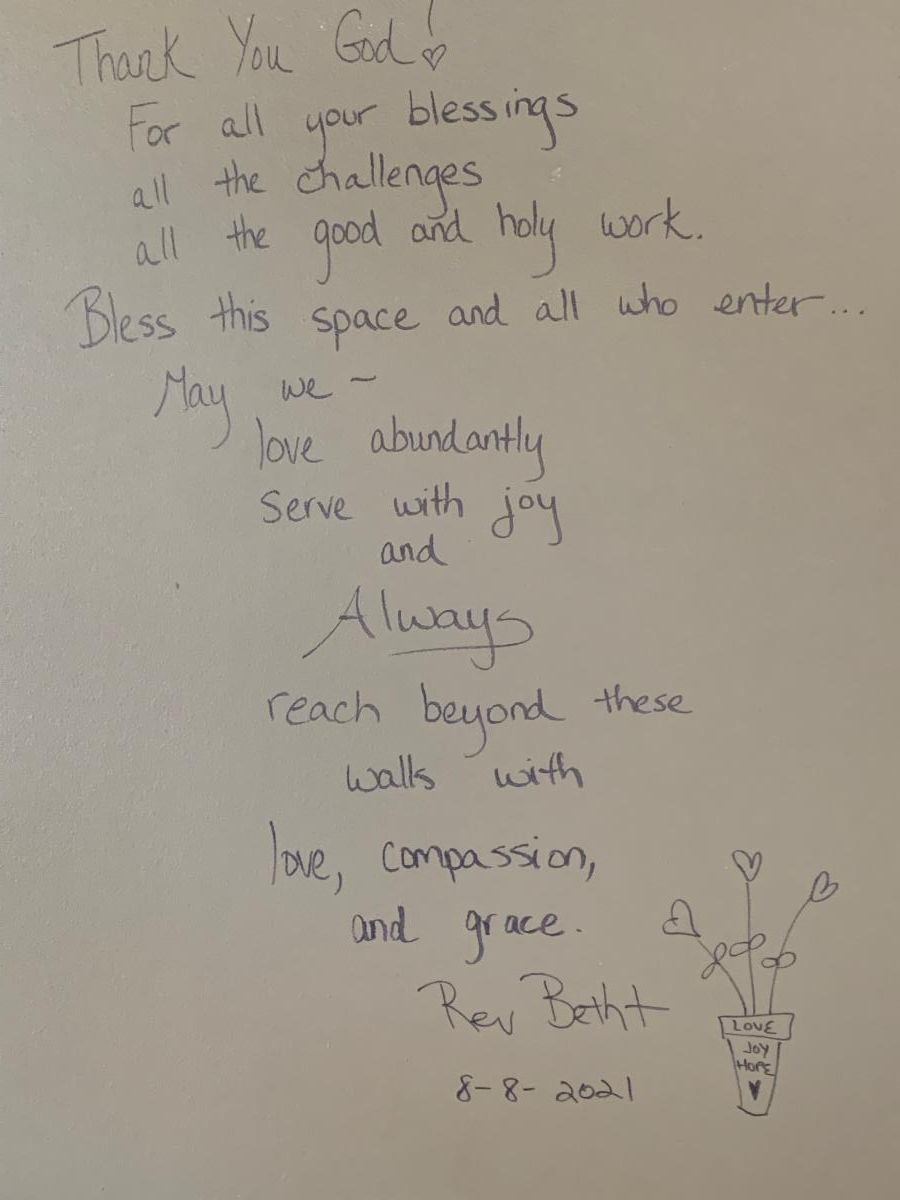 Thank You God!
For all your blessings
all the challenges
all the good and holy work.
Bless this space and all who enter...
May we -
love abundantly
Serve with joy
and
Always
reach beyond these
walls with
love, compassion,
and grace.
Rev Beth+
8-8-2021
LOVE
JOY
HOPE